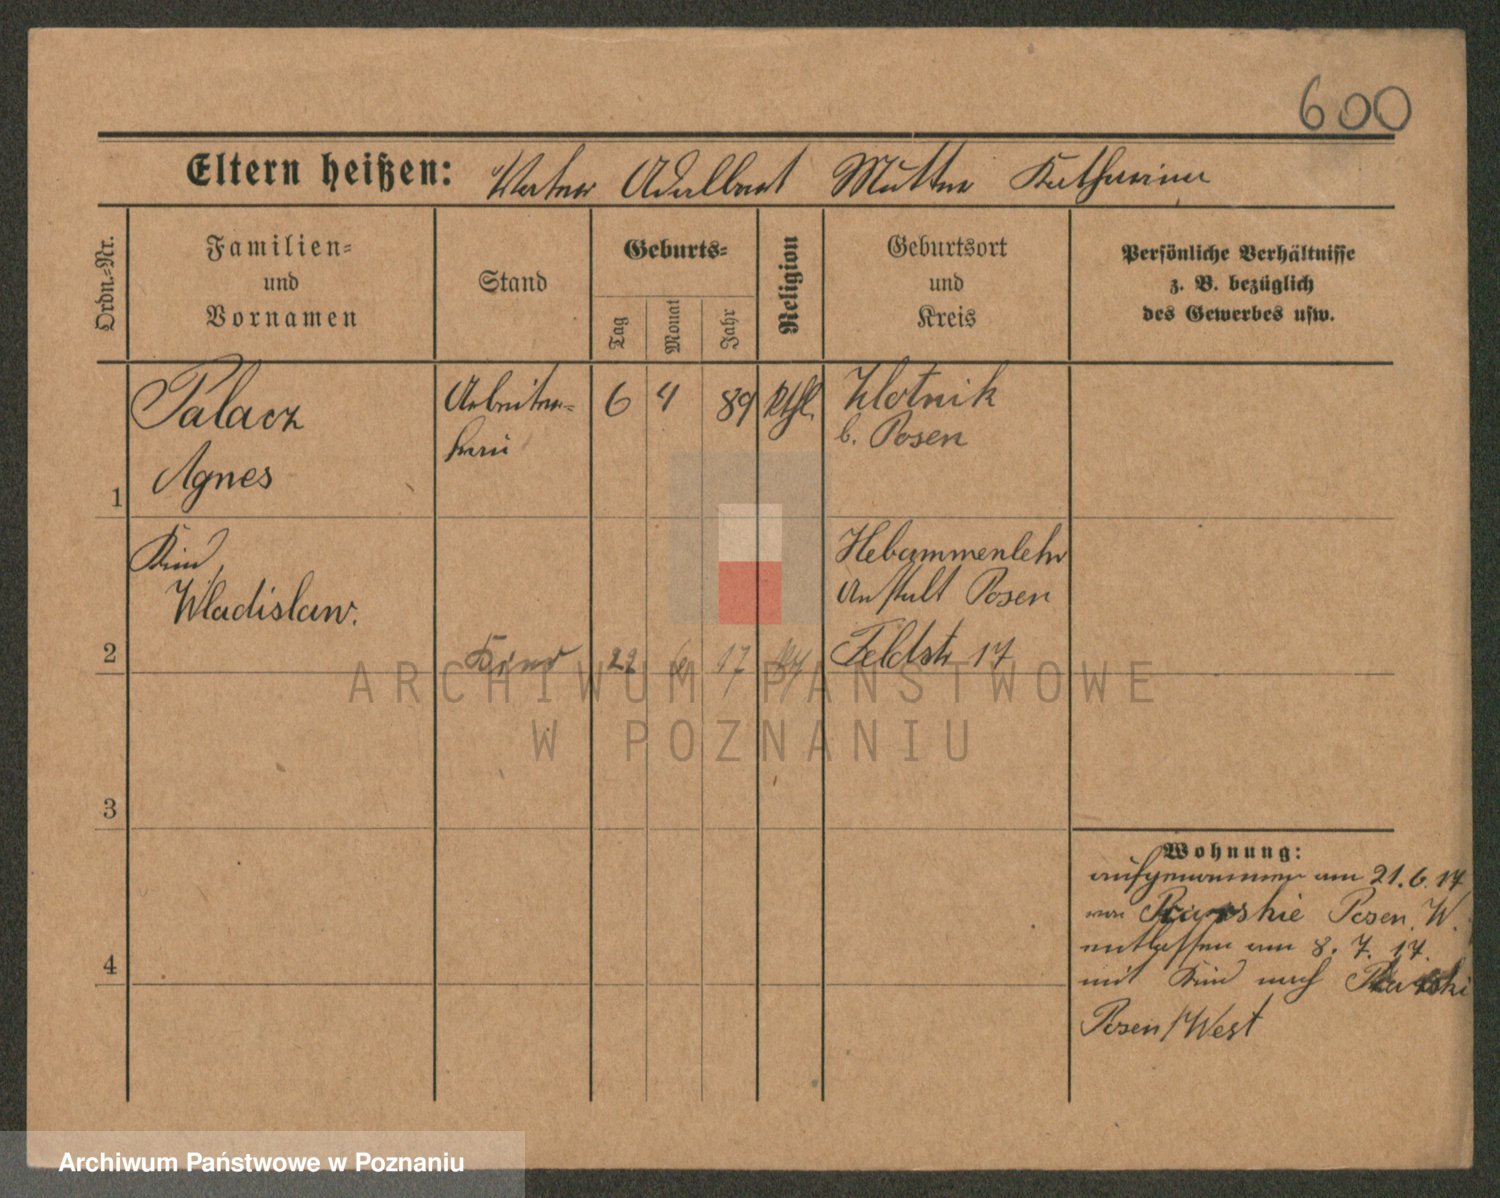 600
Eltern heißen: Vater Adalbert Mutter Katharina
Ordn.-Nr.
Familien-
und
Vornamen
Stand
Geburts-
Tag
Monat
Jahr
Religion
Geburtsort
und
Kreis
Persönliche Verhältnisse
z. B. bezüglich
des Gewerbes usw.
1
Palacz
Agnes
Arbeiter-
frau
6 4 89 Kthl.
Zlotnik
b. Posen
2
Kind
Wladislaw.
Kind 22 6 17
Hebammenlehr
Anstalt Posen
Feldstr 17
3
4
Wohnung:
aufgenommen am 21.6.17
von Posen W.
entlassen am 8. 7. 17.
mit Kind nach
Posen/West
ARCHIWUM PAŃSTWOWE
W POZNANIU
Archiwum Państwowe w Poznaniu